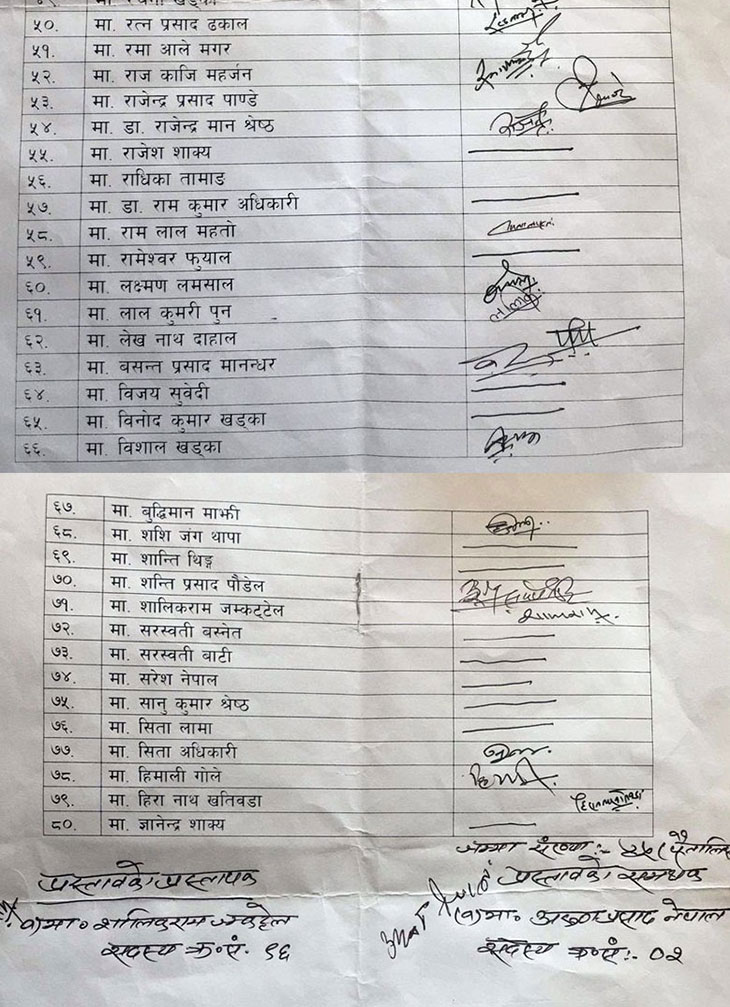 ५०. मा. रत्न प्रसाद ढकाल
५१. मा. रमा आले मगर
५२. मा. राज काजि महर्जन
५३. मा. राजेन्द्र प्रसाद पाण्डे
५४. मा. डा. राजेन्द्र मान श्रेष्ठ
५५. मा. राजेश शाक्य
५६. मा. राधिका तामाङ
५७. मा. डा. राम कुमार अधिकारी
५८. मा. राम लाल महतो
५९. मा. रामेश्वर फुयाल
६०. मा. लक्ष्मण लमसाल
६१. मा. लाल कुमरी पुन
६२. मा. लेख नाथ दाहाल
६३. मा. बसन्त प्रसाद मानन्धर
६४. मा. विजय सुवेदी
६५. मा. विनोद कुमार खड्का
६६. मा. विशाल खड्का
६७. मा. बुद्धिमान माझी
६८. मा. शशि जंग थापा
६९. मा. शान्ति थिङ्ग
७०. मा. शन्ति प्रसाद पौडेल
७१. मा. शालिकराम जम्कट्टेल
७२. मा. सरस्वती बस्नेत
७३. मा. सरस्वती बाटी
७४. मा. सरेश नेपाल
७५. मा. सानु कुमार श्रेष्ठ
७६. मा. सिता लामा
७७. मा. सिता अधिकारी
७८. मा. हिमाली गोले
७९. मा. हिरा नाथ खतिवडा
८०. मा. ज्ञानेन्द्र शाक्य
जम्मा संख्या:-
प्रस्तावको प्रस्तावक
प्रस्तावको समर्थक
मा० शालिकराम जम्कट्टेल
मा० प्रसाद नेपाल
सदस्य क्र०सं० १६
सदस्य क्र०सं:- ०२